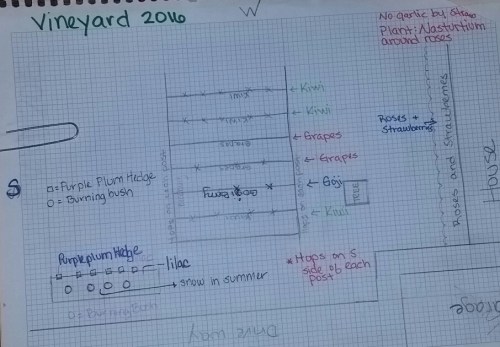 Vineyard 2016
W
No garlic by Straw
Plant: Nasturtium
around roses
Kiwi
Kiwi
Grapes
Grapes
Goji
Kiwi
Goji Berry
Roses +
Strawberries
Roses and Strawberries
House
S
□ = Purple Plum Hedge
O = Burning bush
Purple plum Hedge
lilac
snow in summer
O = Burning Bush
* Hops on S
side of each
post
Drive way
Garage